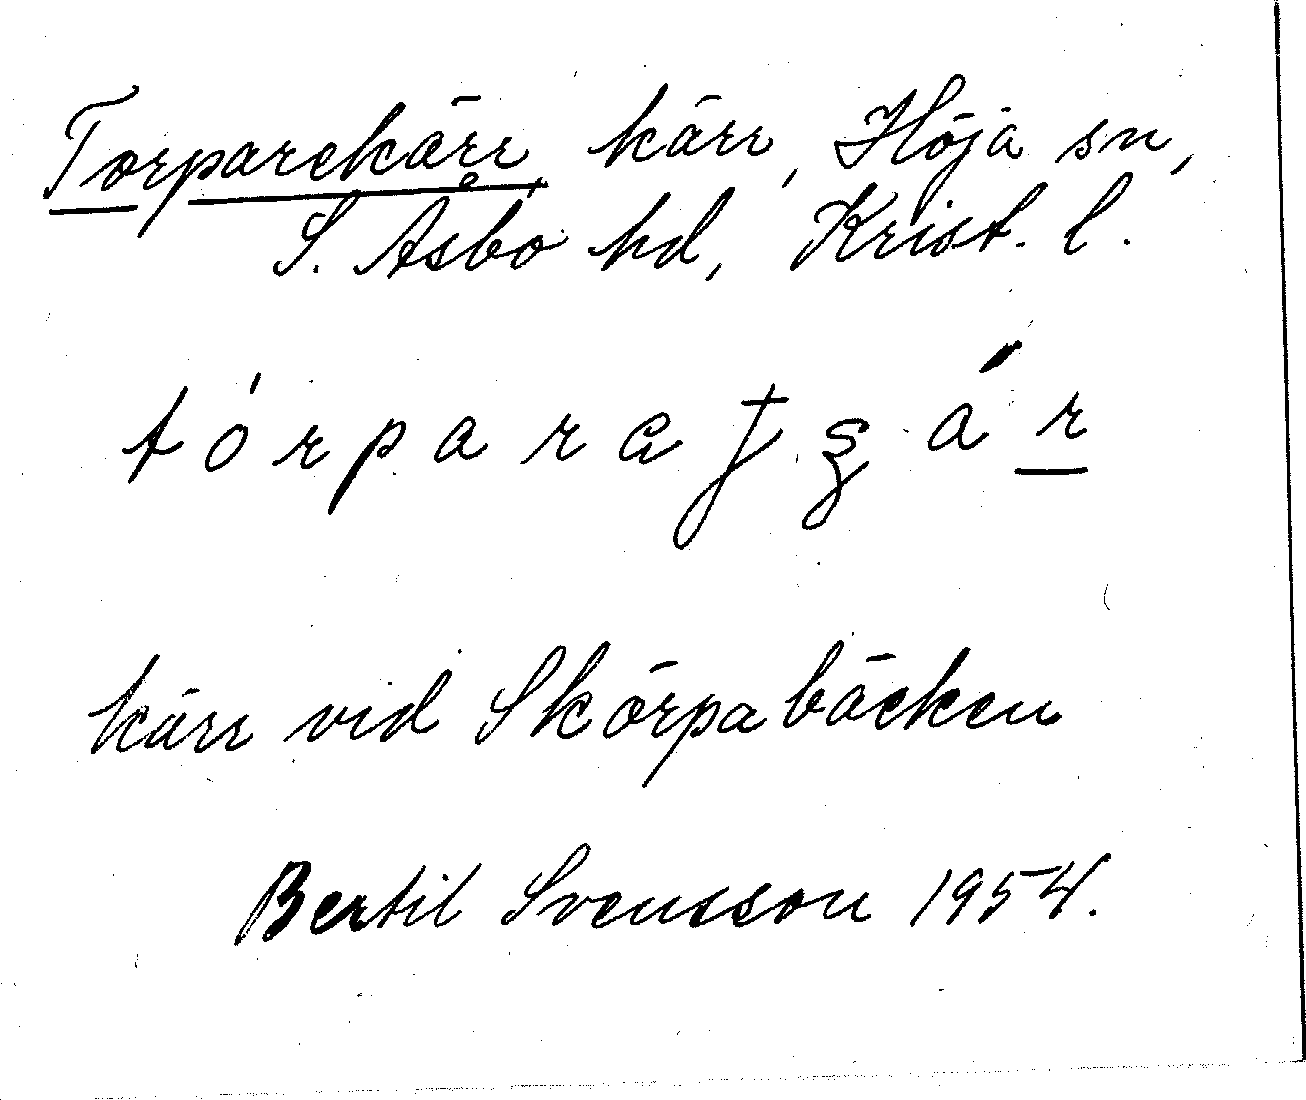 Torparekärr, kärr, Höja sn,
S. Åsbo hd, Krist. l.
kärr vid Skörpabäcken
Bertil Svensson 1954.